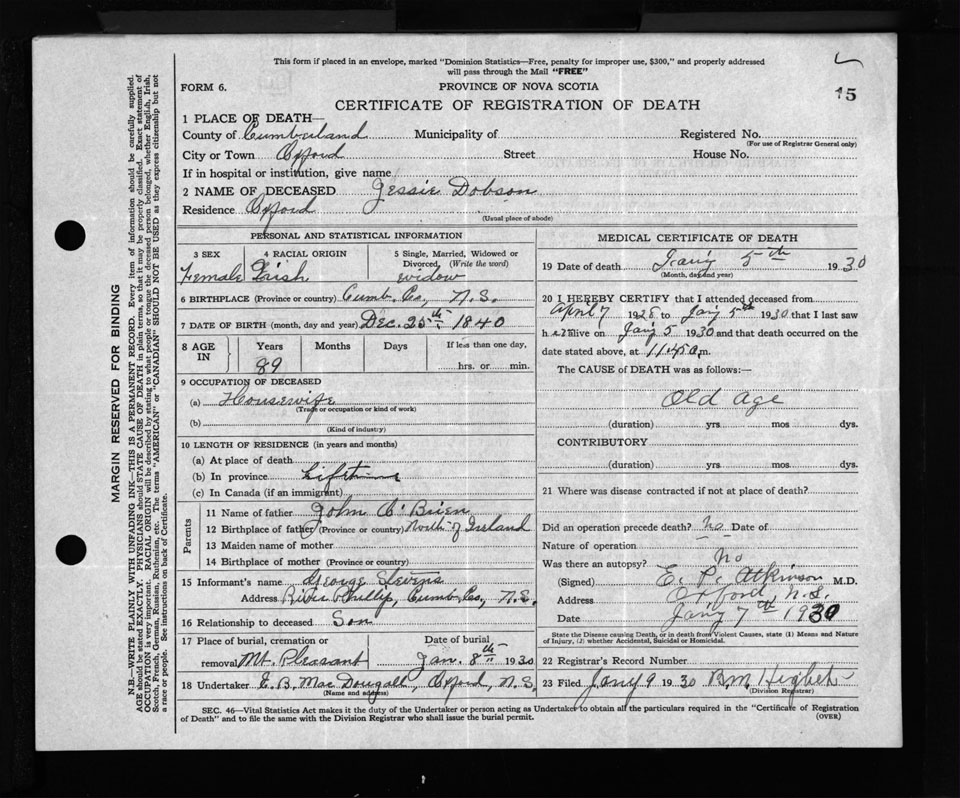 This form if placed in an envelope, marked "Dominion Statistics—Free, penalty for improper use, $300," and properly addressed
will pass through the Mail "FREE"
15
FORM 6.
PROVINCE OF NOVA SCOTIA
CERTIFICATE OF REGISTRATION OF DEATH
1 PLACE OF DEATH—
County of Cumberland Municipality of Registered No.
(For use of Registrar General only)
City or Town Oxford Street House No.
If in hospital or institution, give name
2 NAME OF DECEASED Jessie Dobson
Residence Oxford
(Usual place of abode)
PERSONAL AND STATISTICAL INFORMATION
3 SEX 4 RACIAL ORIGIN 5 Single, Married, Widowed or
Divorced, (Write the word)
Female Irish widow
6 BIRTHPLACE (Province or country) Cumb. Co., N.S.
7 DATE OF BIRTH (month, day and year) Dec. 25th 1840
8 AGE IN Years Months Days If less than one day,
89 hrs. or min.
9 OCCUPATION OF DECEASED
(a) Housewife
(Trade or occupation or kind of work)
(b)
(Kind of industry)
10 LENGTH OF RESIDENCE (in years and months)
(a) At place of death
(b) In province Lifetime
(c) In Canada (if an immigrant)
Parents
11 Name of father John O'Brien
12 Birthplace of father (Province or country) North of Ireland
13 Maiden name of mother
14 Birthplace of mother (Province or country)
15 Informant's name George Stevens
Address River Phillip, Cumb. Co., N.S.
16 Relationship to deceased Son
17 Place of burial, cremation or Date of burial
removal Mt. Pleasant Jan. 8th 1930
18 Undertaker E. B. MacDougall, Oxford, N.S.
(Name and address)
MEDICAL CERTIFICATE OF DEATH
19 Date of death Jan'y 5th 1930
(Month, day and year)
20 I HEREBY CERTIFY that I attended deceased from
April 7 1928 to Jan'y 5th 1930 that I last saw
h er alive on Jan'y 5 1930 and that death occurred on the
date stated above, at 11.45 a.m.
The CAUSE of DEATH was as follows:—
Old Age
(duration) yrs. mos. dys.
CONTRIBUTORY
(duration) yrs. mos. dys.
21 Where was disease contracted if not at place of death?
Did an operation precede death? No Date of
Nature of operation
Was there an autopsy? No
(Signed) E. P. Atkinson M.D.
Address Oxford, N.S.
Date Jan'y 7th 1930
State the Disease causing Death, or in death from Violent Causes, state (1) Means and Nature
of Injury, (2) whether Accidental, Suicidal or Homicidal.
22 Registrar's Record Number
23 Filed Jany 9 1930 B.M.
(Division Registrar)
SEC. 46—Vital Statistics Act makes it the duty of the Undertaker or person acting as Undertaker to obtain all the particulars required in the "Certificate of Registration
of Death" and to file the same with the Division Registrar who shall issue the burial permit.
(OVER)
MARGIN RESERVED FOR BINDING
N.B.—WRITE PLAINLY WITH UNFADING INK—THIS IS A PERMANENT RECORD. Every item of information should be carefully supplied.
AGE should be stated EXACTLY. PHYSICIANS should STATE CAUSE OF DEATH in plain terms, so that it may be properly classified. Exact statement of
OCCUPATION is very important. RACIAL ORIGIN will be described by stating to what people or tongue the deceased person belonged, whether English, Irish,
Scotch, French, German, Russian, Ruthenian, etc. The terms "AMERICAN" or "CANADIAN" SHOULD NOT BE USED as they express citizenship but not
a race or people. See instructions on back of Certificate.